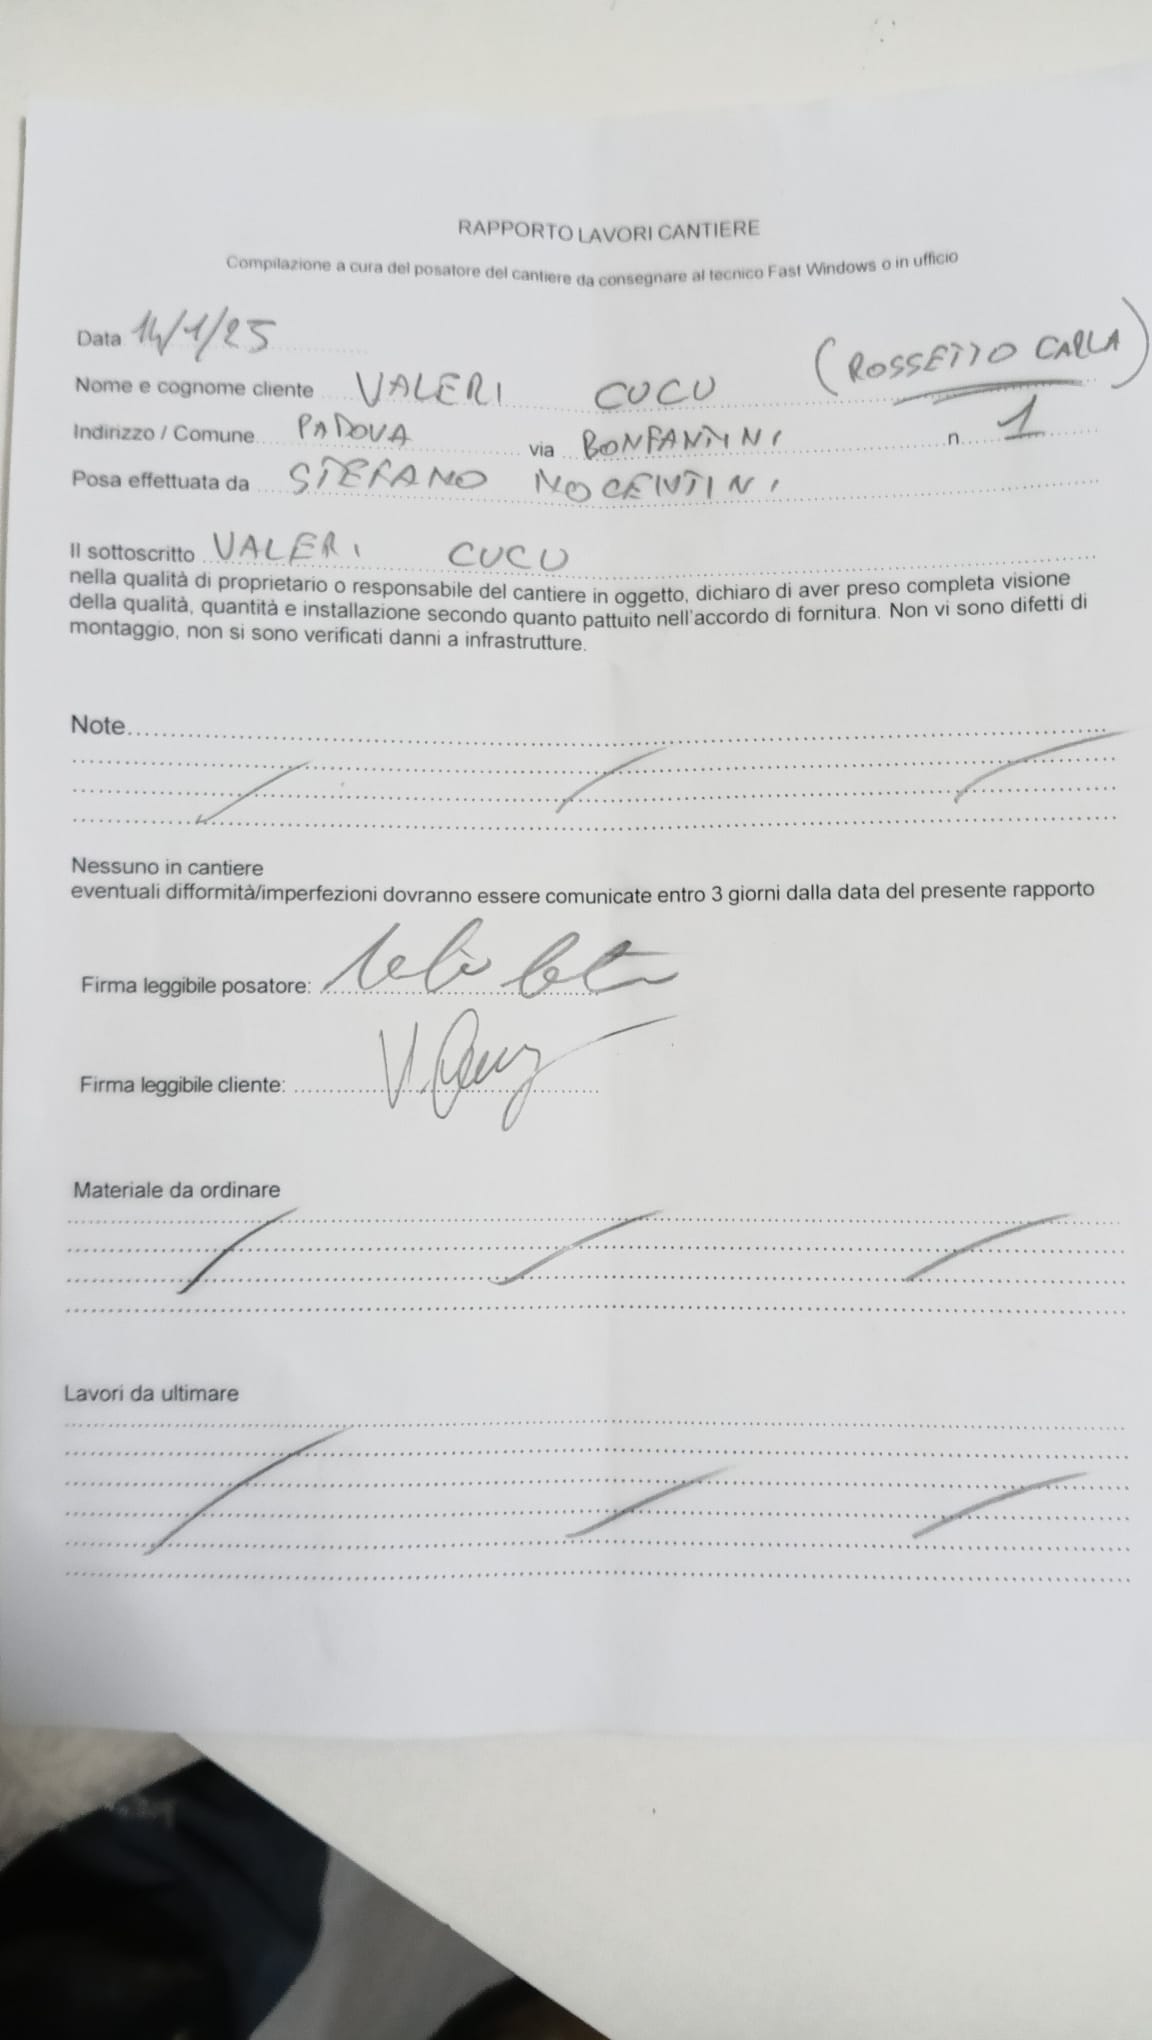 RAPPORTO LAVORI CANTIERE
Compilazione a cura del posatore del cantiere da consegnare al tecnico Fast Windows o in ufficio
Data 14/1/25
(ROSSETTO CARLA)
Nome e cognome cliente VALERI CUCU
Indirizzo / Comune PADOVA via BONFANTINI n. 1
Posa effettuata da STEFANO NOCENTINI
Il sottoscritto VALERI CUCU
nella qualità di proprietario o responsabile del cantiere in oggetto, dichiaro di aver preso completa visione
della qualità, quantità e installazione secondo quanto pattuito nell'accordo di fornitura. Non vi sono difetti di
montaggio, non si sono verificati danni a infrastrutture.
Note
Nessuno in cantiere
eventuali difformità/imperfezioni dovranno essere comunicate entro 3 giorni dalla data del presente rapporto
Firma leggibile posatore:
Firma leggibile cliente: V.
Materiale da ordinare
Lavori da ultimare